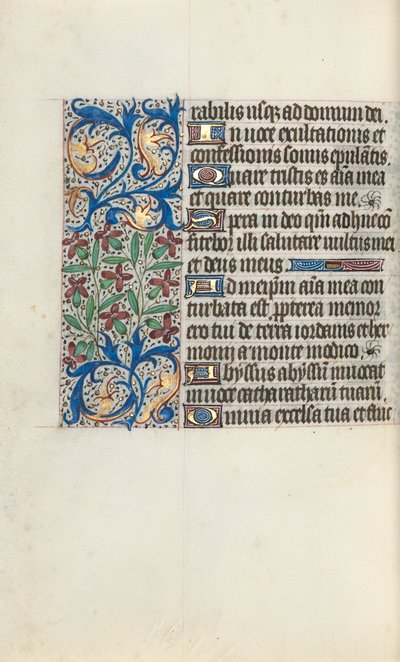 rabilis usq; ad domum dei.
In uoce exultationis et
confessionis sonus epulātis.
Quare tristis es aīa mea
et quare conturbas me.
Spera in deo qm̄ adhuc cō
fitebor illi salutare uultus mei
et deus meus.
Ad meipm̄ aīa mea con
turbata est ꝓpterea memor
ero tui de terra iordanis et her
monij a monte modico.
Abyssus abyssū inuocat
in uoce catharactarū tuarū.
Omnia excelsa tua et fluc